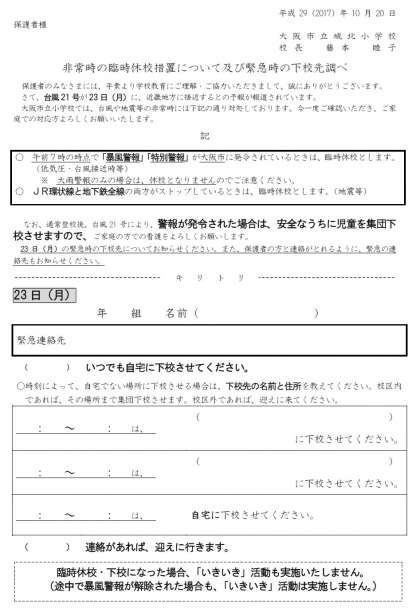 平成 29（2017）年 10 月 20 日
保護者様
大阪市立城北小学校
校長 藤本 睦子
非常時の臨時休校措置について及び緊急時の下校先調べ
保護者のみなさまには、平素より学校教育にご理解・ご協力いただきまして、誠にありがとうございます。
さて、台風21号が23日（月）に、近畿地方に接近するとの予報が報道されています。
大阪市立小学校では、台風や地震等の非常時には下記の通り対処しております。今一度ご確認いただき、ご家
庭での対応方よろしくお願いいたします。
記
○ 午前７時の時点で「暴風警報」「特別警報」が大阪市に発令されているときは、臨時休校とします。
（低気圧・台風接近時等）
※ 大雨警報のみの場合は、休校となりませんのでご注意ください。
○ ＪＲ環状線と地下鉄全線の両方がストップしているときは、臨時休校とします。（地震等）
なお、通常登校後、台風 21 号により、警報が発令された場合は、安全なうちに児童を集団下
校させますので、ご家庭の方での看護をよろしくお願いします。
23 日（月）の緊急時の下校先についてお知らせください。また、保護者の方と連絡がとれるように、緊急の連
絡先もお知らせください。
キ リ ト リ
23 日（月）
年 組 名前（ ）
緊急連絡先
（ ） いつでも自宅に下校させてください。
○時刻によって、自宅でない場所に下校させる場合は、下校先の名前と住所を教えてください。校区内
であれば、その場所まで集団下校させます。校区外であれば、迎えに来てください。
（ ）
： ～ ： は、
に下校させてください。
（ ）
： ～ ： は、
に下校させてください。
： ～ ： は、 自宅に下校させてください。
（ ） 連絡があれば、迎えに行きます。
臨時休校・下校になった場合、「いきいき」活動も実施いたしません。
（途中で暴風警報が解除された場合も、「いきいき」活動は実施しません。）